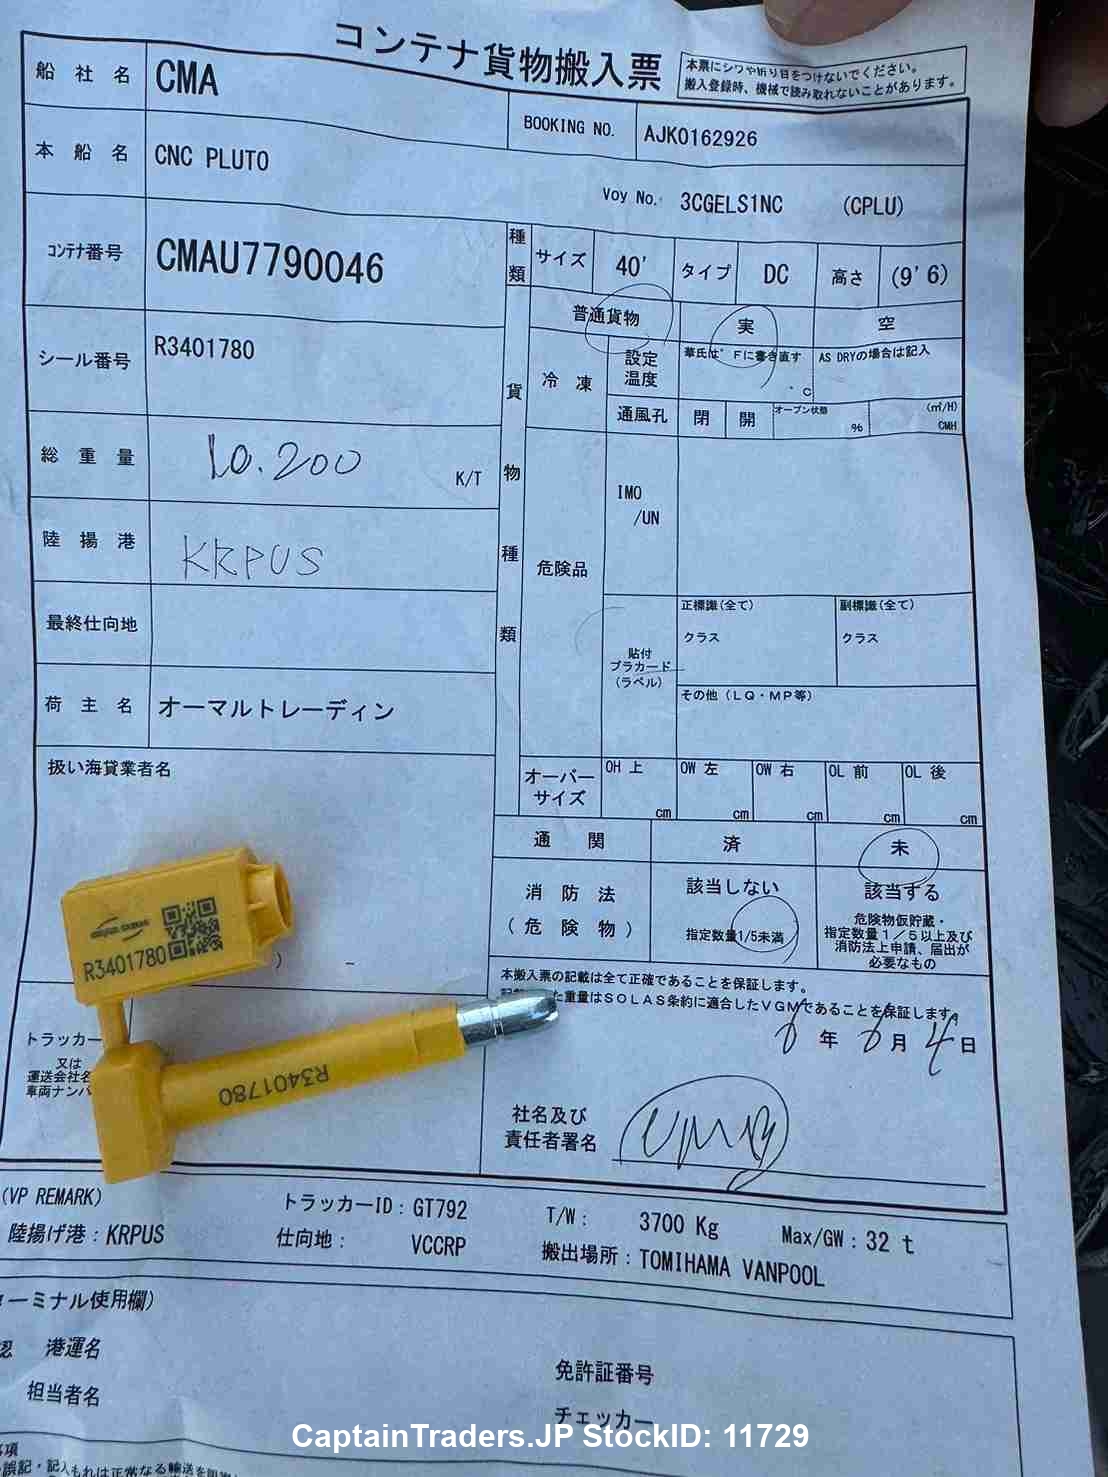 コンテナ貨物搬入票
本票にシワや折り目をつけないでください。
搬入登録時、機械で読み取れないことがあります。
船社名 CMA
BOOKING NO. AJK0162926
本船名 CNC PLUTO
Voy No. 3CGELS1NC (CPLU)
コンテナ番号 CMAU7790046
種類 サイズ 40' タイプ DC 高さ (9'6)
シール番号 R3401780
貨物種類
普通貨物 実 空
冷凍 設定温度 華氏は°Fに書き直す °C AS DRYの場合は記入
通風孔 閉 開 オープン状態 % (㎥/H) CMH
総重量 10.200 K/T
陸揚港 KRPUS
危険品 IMO /UN
最終仕向地
貼付プラカード(ラベル)
正標識(全て) クラス
副標識(全て) クラス
その他(LQ・MP等)
荷主名 オーマルトレーディン
扱い海貨業者名
オーバーサイズ OH 上 cm OW 左 cm OW 右 cm OL 前 cm OL 後 cm
通関 済 未
消防法(危険物) 該当しない 指定数量1/5未満
該当する
危険物仮貯蔵・
指定数量1/5以上及び
消防法上申請、届出が
必要なもの
R3401780
R3401780
本搬入票の記載は全て正確であることを保証します。
た重量はSOLAS条約に適合したVGMであることを保証します。
6年 6月 4日
トラッカー
又は
運送会社名
車両ナンバ
社名及び
責任者署名
(VP REMARK)
トラッカーID:GT792 T/W: 3700 Kg Max/GW:32 t
陸揚げ港:KRPUS 仕向地: VCCRP 搬出場所:TOMIHAMA VANPOOL
ーミナル使用欄)
港運名
担当者名
免許証番号
チェッカー
CaptainTraders.JP StockID: 11729